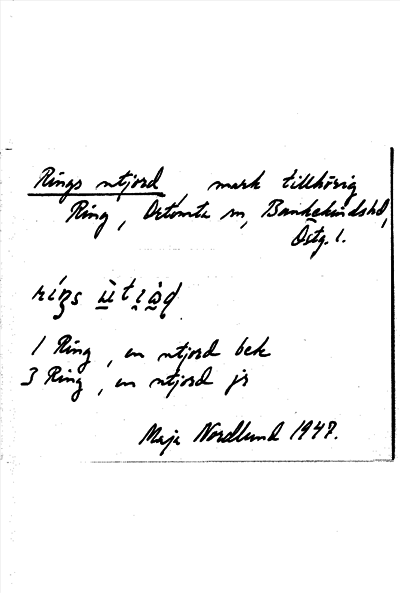 Rings utjord, mark tillhörig
Ring, Örtomta sn, Bankekindshd,
Östg. l.
ríŋs ùtjo̱ɖ
1 Ring, en utjord bek
3 Ring, en utjord jr
Maja Nordlund 1947.